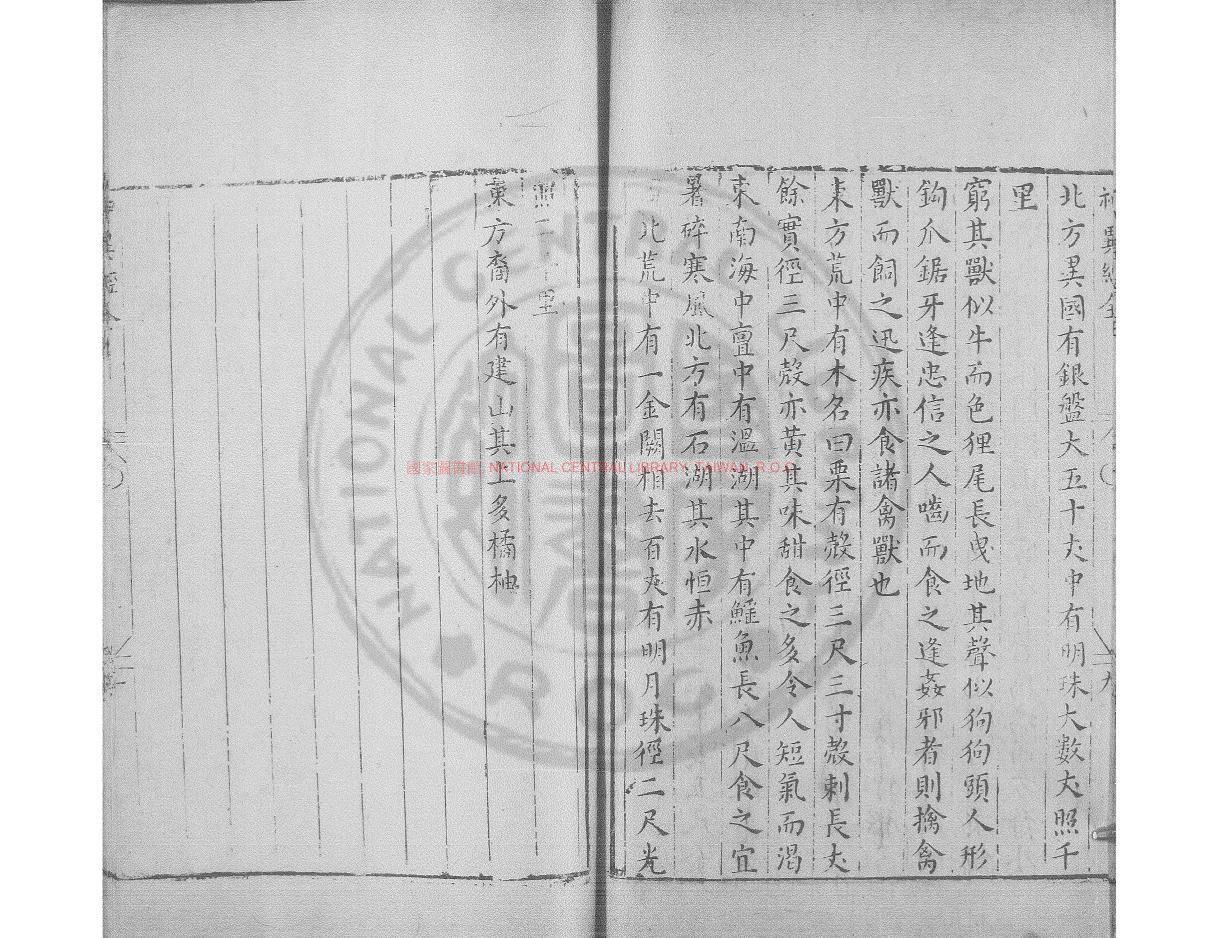 北方異國有銀盤大五十丈中有明珠大數丈照千
里
窮其獸似牛而色狸尾長曳地其聲似狗狗頭人形
鈎爪鋸牙逢忠信之人嚙而食之逢姦邪者則擒禽
獸而飼之迅疾亦食諸禽獸也
東方荒中有木名曰栗有殼徑三尺三寸殼刺長丈
餘實徑三尺殼亦黃其味甜食之多令人短氣而渴
東南海中亶中有溫湖其中有鯥魚長八尺食之宜
暑碎寒風北方有石湖其水恒赤
北荒中有一金闕相去百丈有明月珠徑二尺光
照二千里
東方裔外有建山其上多橘柚
國家圖書館 NATIONAL CENTRAL LIBRARY, TAIWAN, R.O.C.
NATIONAL CENTRAL